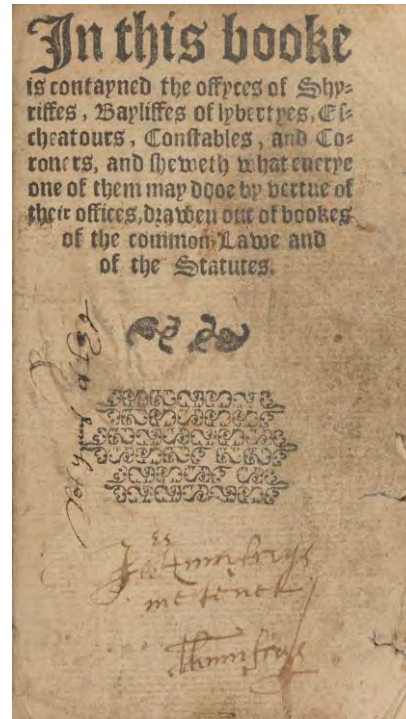 In this booke
is contayned the offyces of Shy⸗
riffes, Bayliffes of lybertyes, Es⸗
cheatours, Constables, and Co⸗
roners, and sheweth what euerye
one of them may dooe by vertue of
their offices, drawen out of bookes
of the common Lawe and
of the Statutes.
me tenet